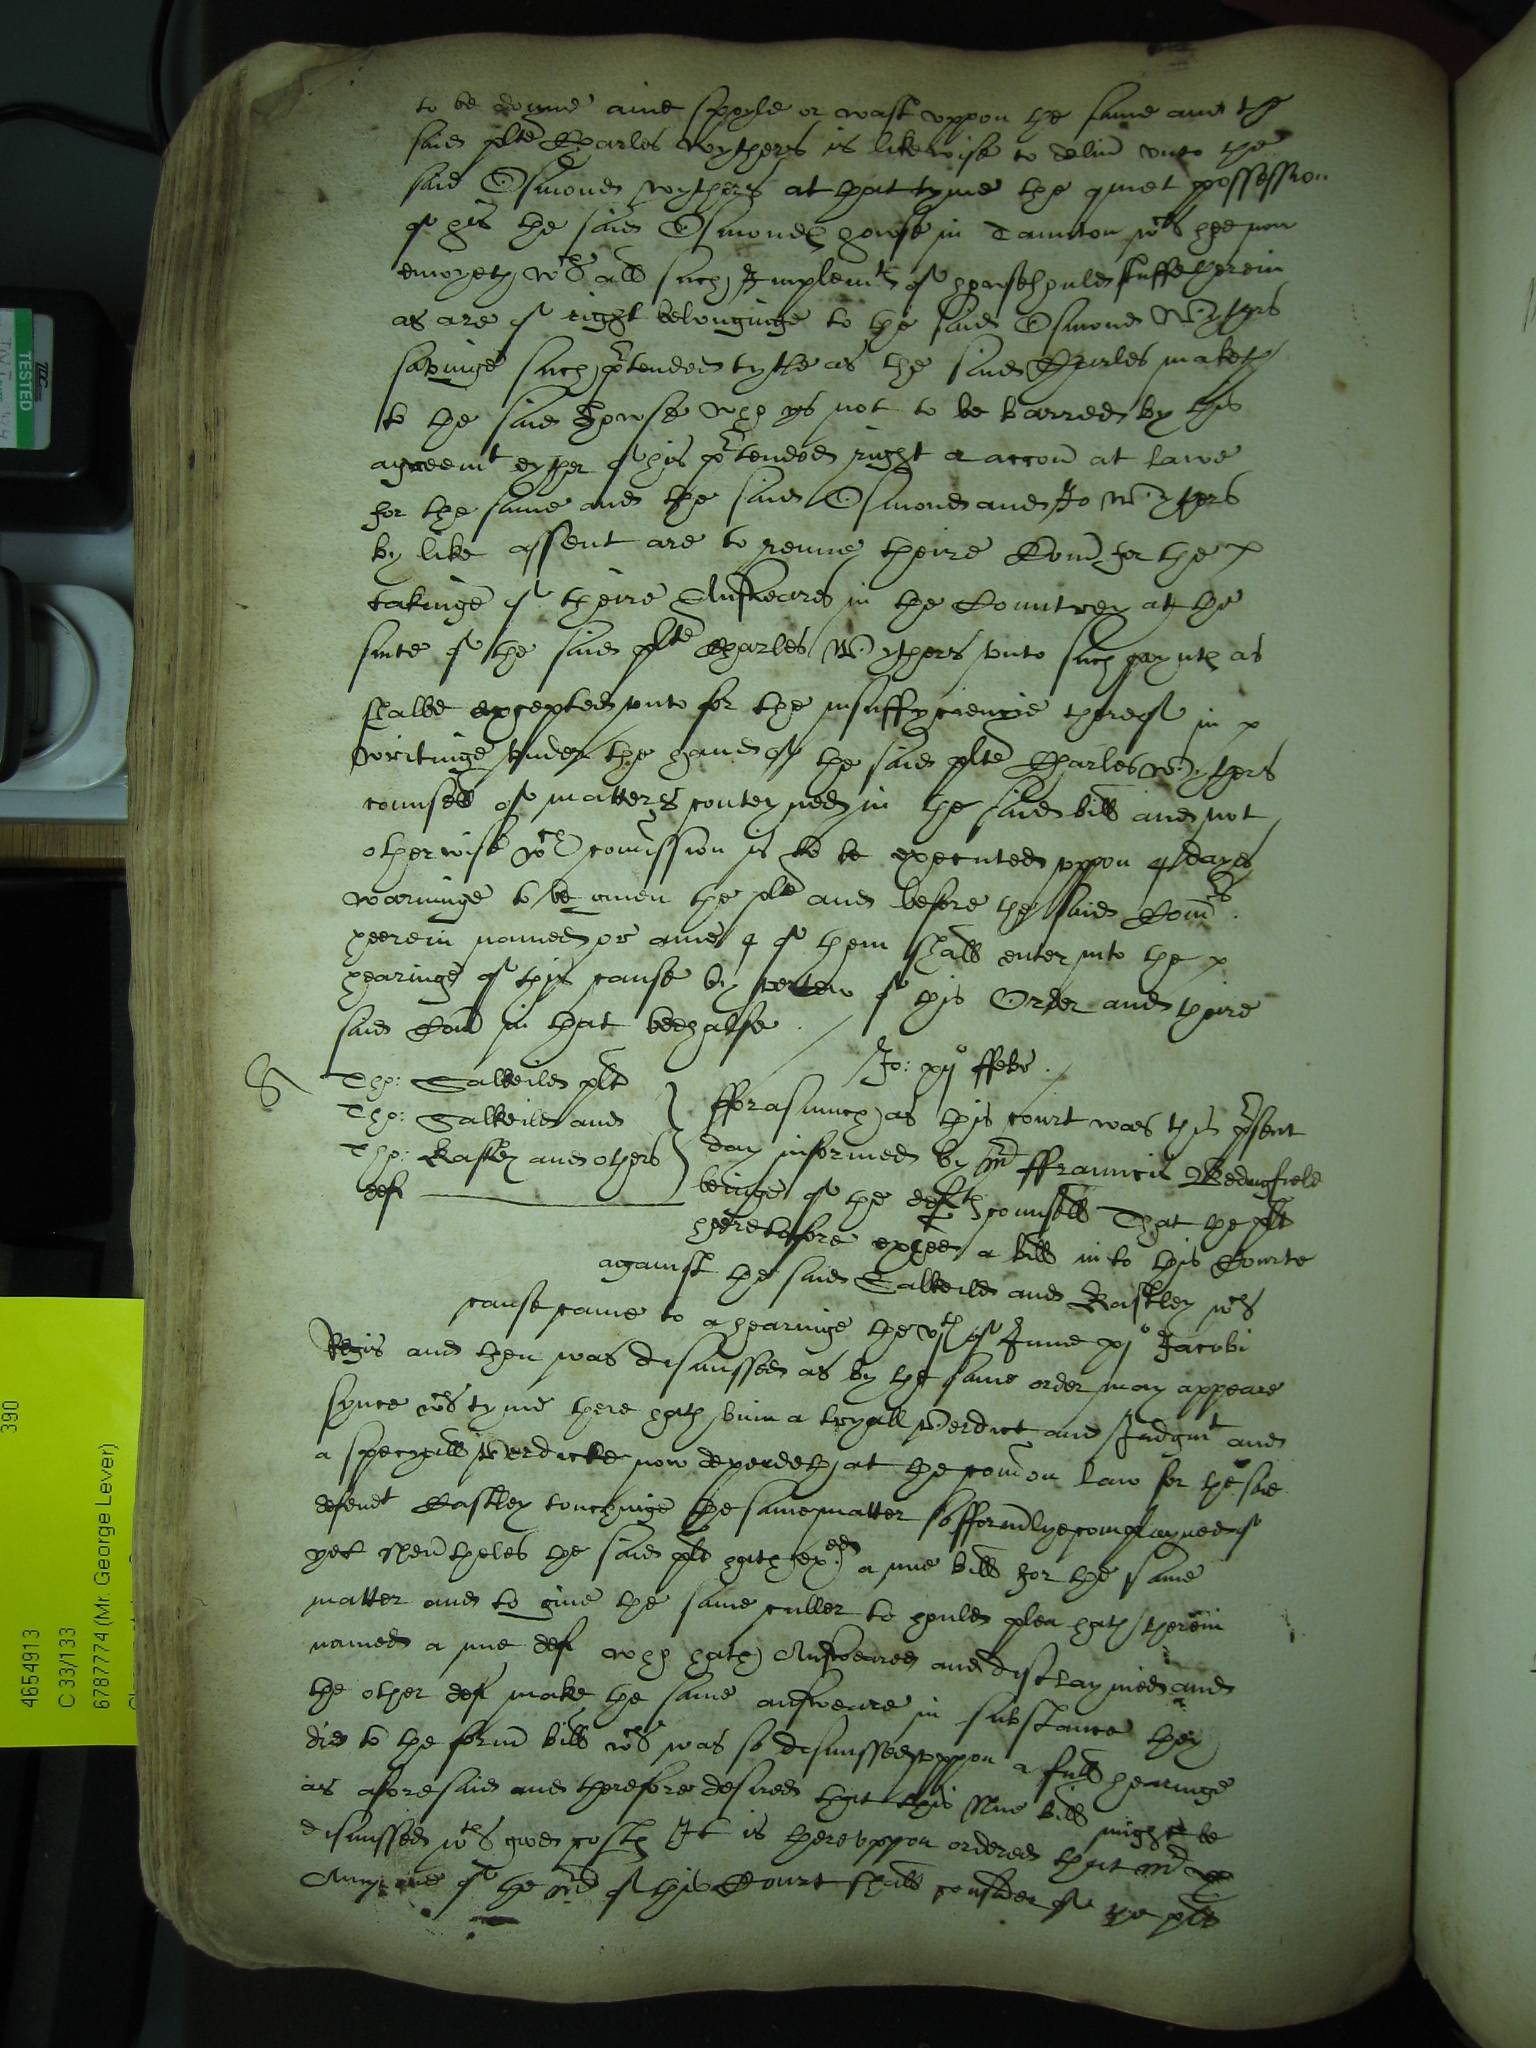 to be donne anie spoyle or wast vppon the same and the
said plte Charles Wythers is likewise to deliu vnto the
said Osmond Wythers at that tyme the quiet possession
of his the said Osmondes howse in Taunton wch hee now
enioyeth wth all such Implemtes of howsehould stuffe therein
as are of right belonginge to the said Osmond Wythers
savinge such ptended tytle as the said Charles maketh
to the said Howse who ys not to be barred by this
agreemt eyther of his ptended right or accon at lawe
for the same and the said Osmond and Jo Wythers
by like assent are to renue theire Com for the
takinge of theire Answeares in the Countrey at the
suite of the said plte Charles Wythers vnto such pointes as
shalbe excepted vnto for the insuffyciencie thereof in
writinge vnder the hand of the said plte Charles Wythers
counsell of matters conteyned in the said bill and not
otherwise wch comission is to be executed vppon 4 dayes
warninge to be giuen the plt and before the said Comrs
herein named or anie 4 of them shall enter into the
hearinge of this cause by vertew of this Order and theire
said Com in that beehalfe
Jo: xij ffebr
Tho: Salkeild plt
Tho: Salkeild and
Tho: Rastley and others
def
fforasmuch as this court was this psent
day informed by mr ffrauncis Bedingfield
beinge of the deftes counsell That the plt
heretofore exhited a bill into this Courte
against the said Salkeild and Rastley wch
cause came to a hearinge the vjth of June xjo Jacobi
Regis and then was dismissed as by the same order may appeare
synce wch tyme there hath bin a tryall Verdict and Judgmt and
a speciyall Verdicke now dependeth at the comon law for the said
defendt Rastley touchinge the same matter so formlye complayned of
yet neutheles the said plt hath exed a nue bill for the same
matter and to giue the same culler to hould plea hath therein
named a nue def who hath Answeared and disclaymed and
the other def make the same answeare in substance they
did to the form bill wch was so dismissed vppon a full hearinge
as aforesaid and therefore desired that this Nue bill might be
dismissed wth good costes It is herevppon ordered that mr
of the mrs of this Court shall consider of the pltes
4654913
C 33/133
6787774 (Mr. George Lever)
390
TESTED